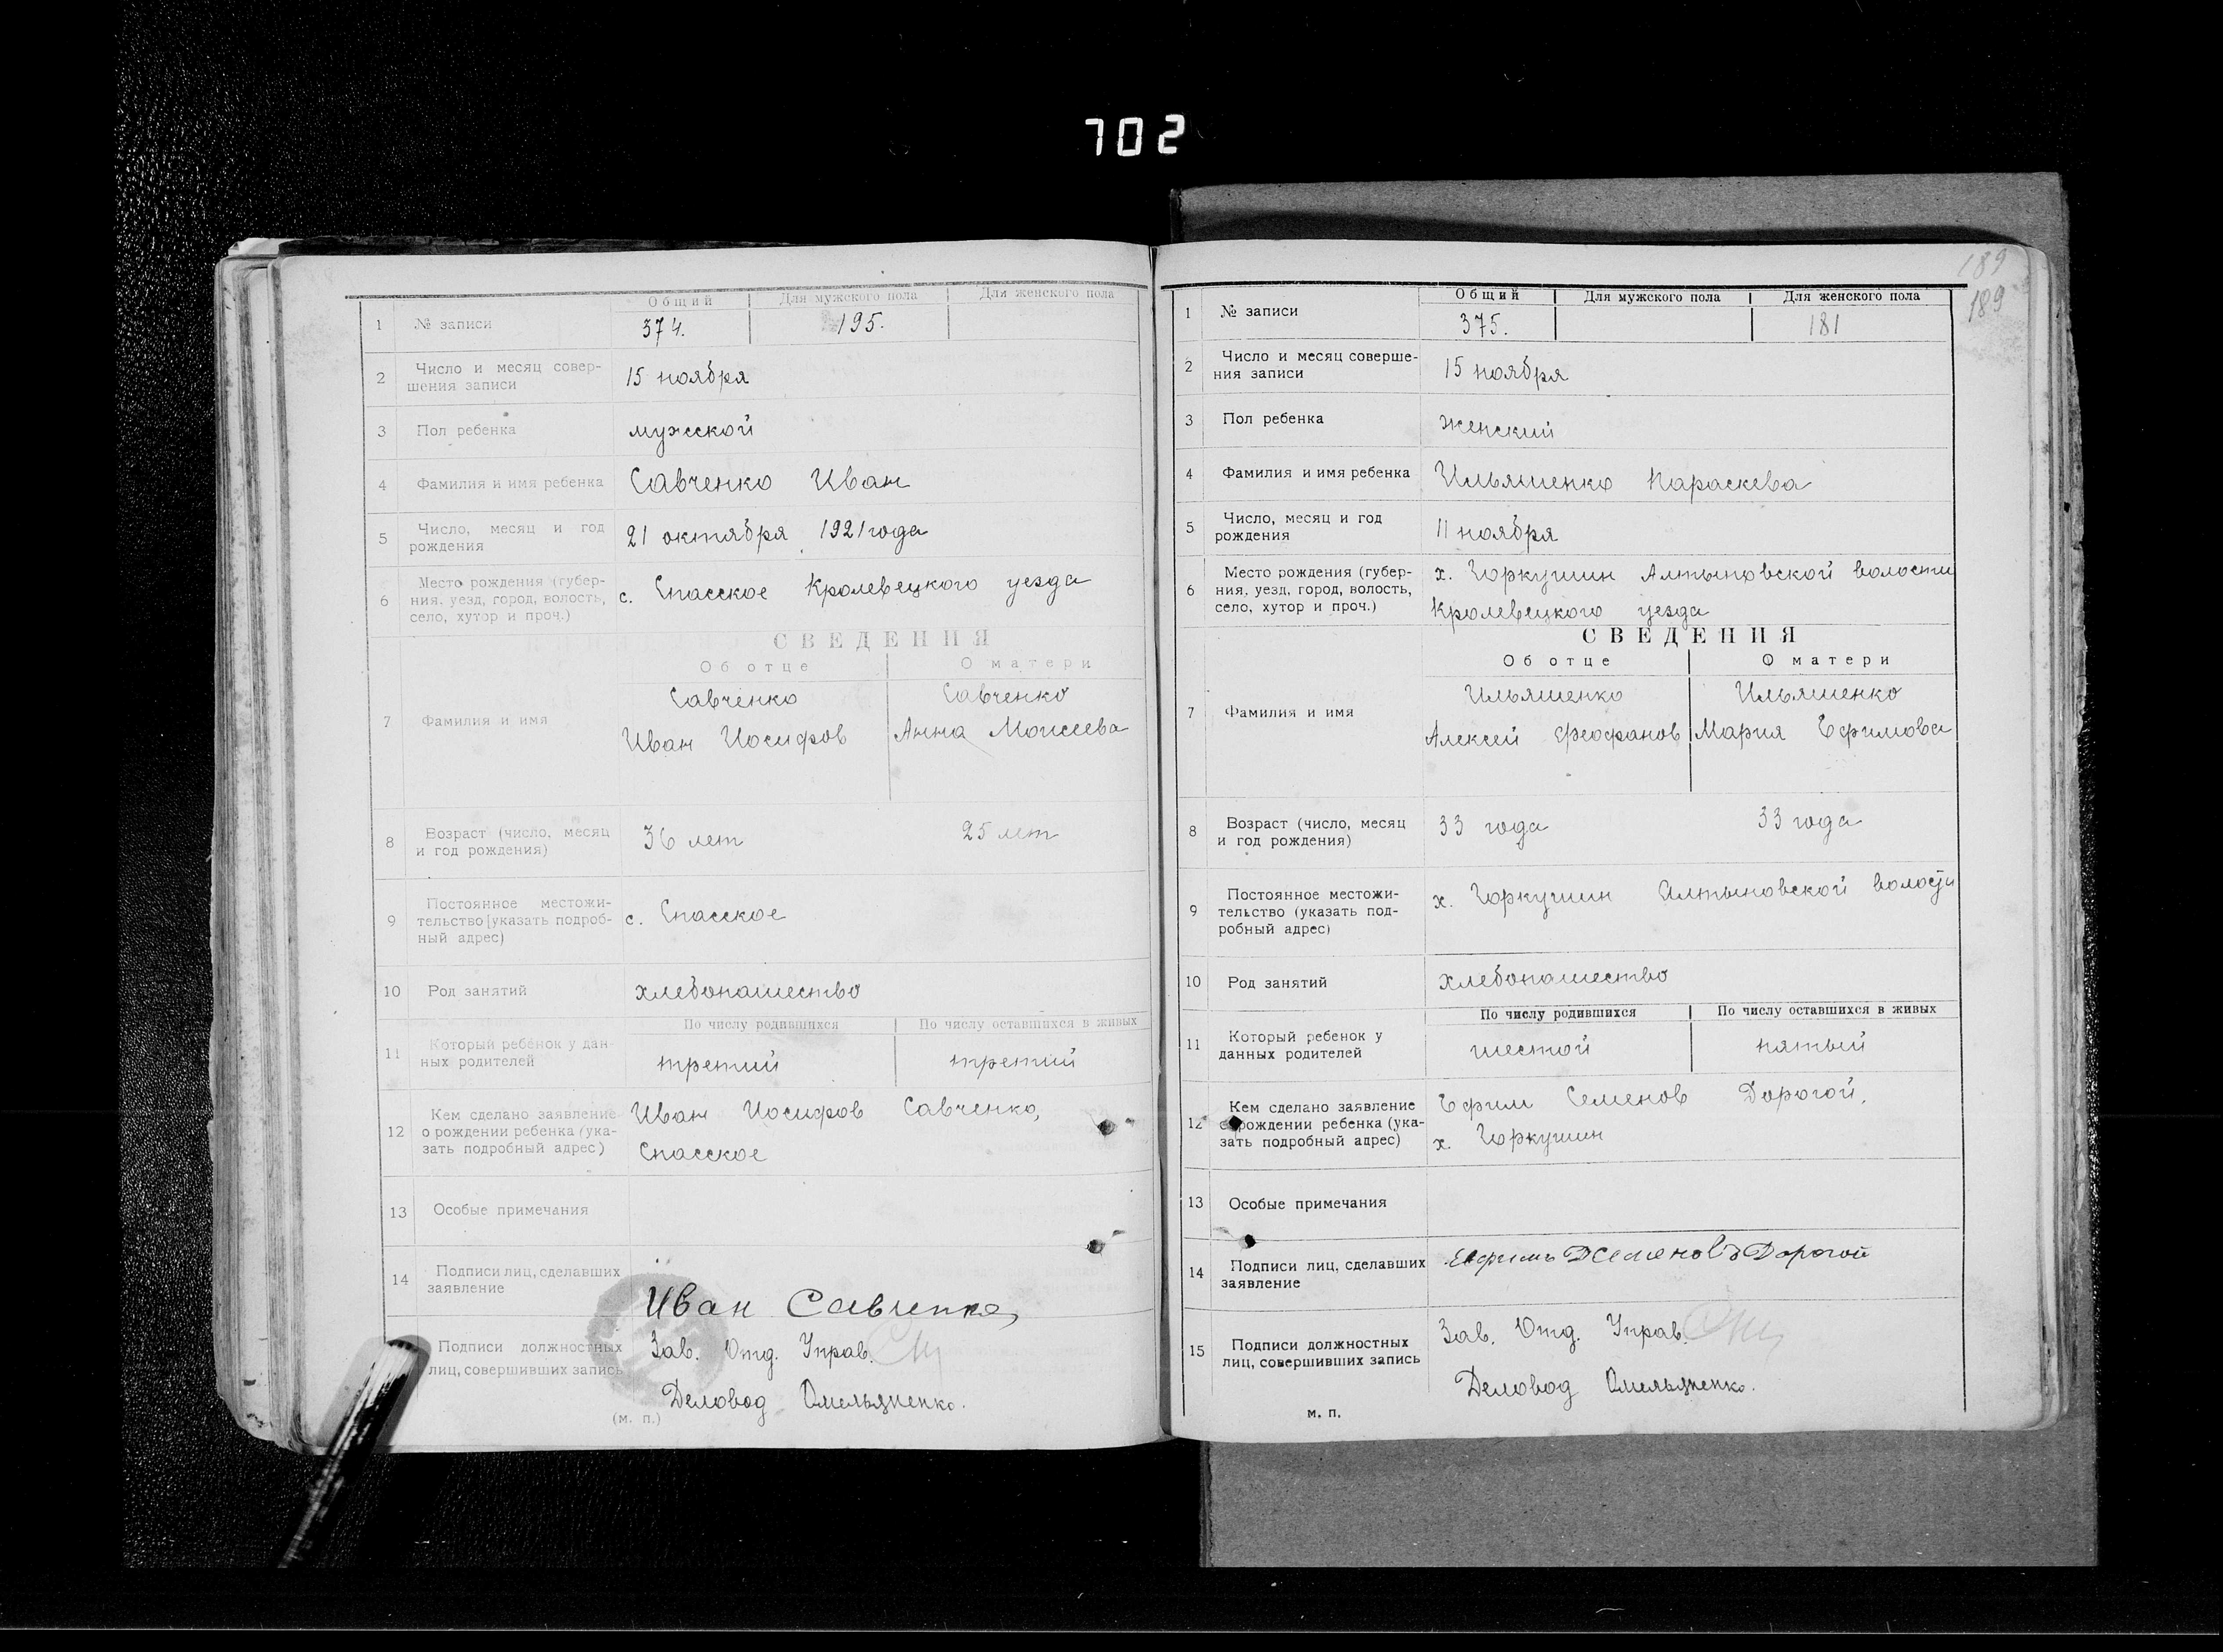 702
Общий Для мужского пола Для женского пола
1 № записи 374. 195.
2 Число и месяц совер-
шения записи 15 ноября
3 Пол ребенка мужской
4 Фамилия и имя ребенка Савченко Иван
5 Число, месяц и год
рождения 21 октября 1921 года
6 Место рождения (губер-
ния, уезд, город, волость,
село, хутор и проч.) с. Спасское Кролевецкого уезда
СВЕДЕНИЯ
Об отце О матери
7 Фамилия и имя Савченко Савченко
Иван Иосифов Анна Моисеева
8 Возраст (число, месяц
и год рождения) 36 лет 25 лет
9 Постоянное местожи-
тельство [указать подроб-
ный адрес) с. Спасское
10 Род занятий хлебопашество
По числу родившихся По числу оставшихся в живых
11 Который ребенок у дан-
ных родителей третий третий
12 Кем сделано заявление
о рождении ребенка (ука-
зать подробный адрес) Иван Иосифов Савченко,
Спасское
13 Особые примечания
14 Подписи лиц, сделавших
заявление Иван Савченко
Подписи должностных
лиц, совершивших запись Зав. Отд. Управ.
Деловод Омельяненко.
(м. п.)
189
189
Общий Для мужского пола Для женского пола
1 № записи 375. 181
2 Число и месяц соверше-
ния записи 15 ноября
3 Пол ребенка женский
4 Фамилия и имя ребенка Ильяшенко Параскева
5 Число, месяц и год
рождения 11 ноября
6 Место рождения (губер-
ния, уезд, город, волость,
село, хутор и проч.) х. Горкушин Алтыновской волости
Кролевецкого уезда
СВЕДЕНИЯ
Об отце О матери
7 Фамилия и имя Ильяшенко Ильяшенко
Алексей Феофанов Мария Ефимова
8 Возраст (число, месяц
и год рождения) 33 года 33 года
9 Постоянное местожи-
тельство (указать под-
робный адрес) х. Горкушин Алтыновской волости
10 Род занятий хлебопашество
По числу родившихся По числу оставшихся в живых
11 Который ребенок у
данных родителей шестой пятый
12 Кем сделано заявление
о рождении ребенка (ука-
зать подробный адрес) Ефим Семенов Дорогой,
х. Горкушин
13 Особые примечания
14 Подписи лиц, сделавших
заявление Дорогой
15 Подписи должностных
лиц, совершивших запись Зав. Отд. Управ.
Деловод Омельяненко.
м. п.